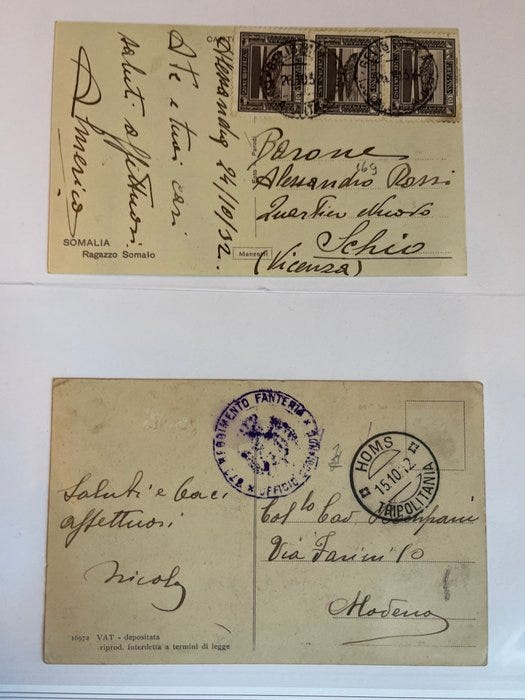 Alessandria 24/10/32.
A Te e tuoi cari
saluti affettuosi.
Americo
SOMALIA
Ragazzo Somalo
Barone
Alessandro Rossi
169
Quartier Nuovo
Schio
(Vicenza)
Manzatti
REGGIMENTO FANTERIA
UFFICIO
HOMS
15.10.12
TRIPOLITANIA
Saluti e baci
affettuosi
Nicola
Via Farini 10
Modena
16972 VAT - depositata
riprod. interdetta a termini di legge